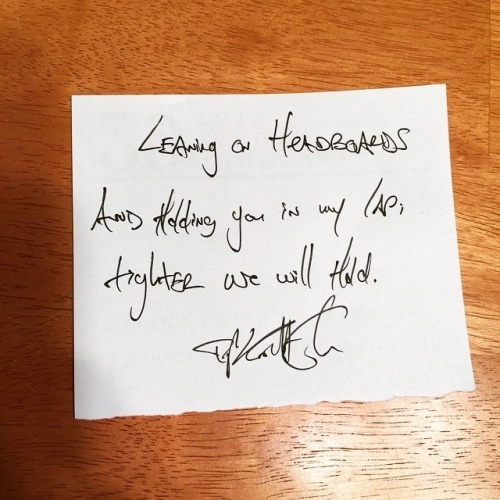 Leaning on Headboards
And Holding you in my lap;
tighter we will Hold.